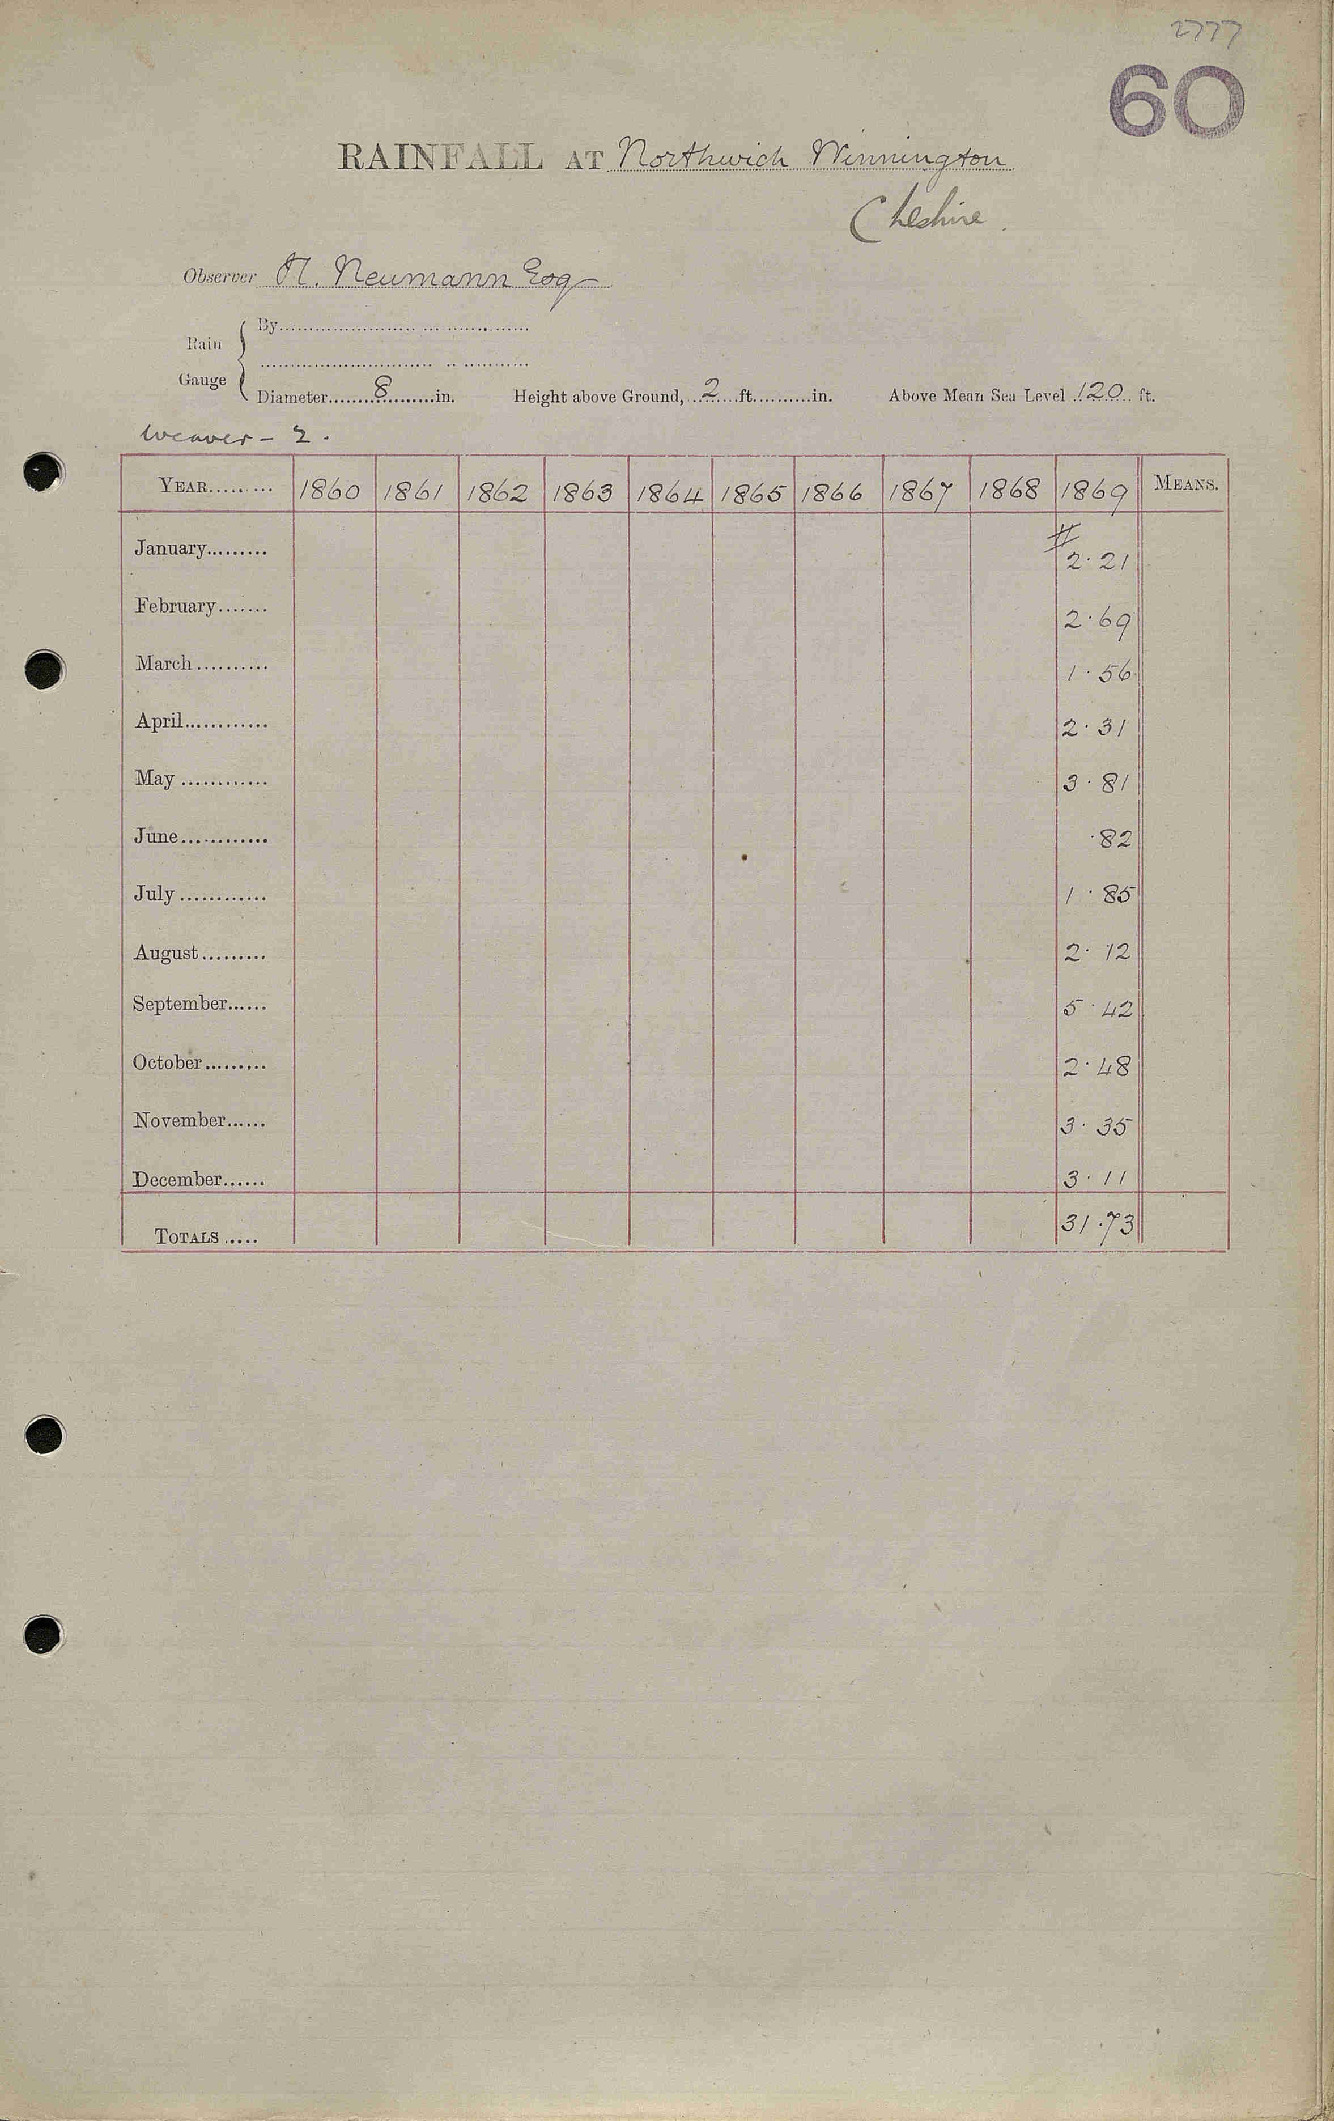 2777
60
RAINFALL AT Northwich Winnington
Cheshire.
Observer H. Neumann Esq
Rain Gauge { By
Diameter 8 in. Height above Ground, 2 ft. in. Above Mean Sea Level 120 ft.
Weaver - 2.
YEAR 1860 1861 1862 1863 1864 1865 1866 1867 1868 1869 MEANS.
January # 2.21
February 2.69
March 1.56
April 2.31
May 3.81
June .82
July 1.85
August 2.12
September 5.42
October 2.48
November 3.35
December 3.11
TOTALS 31.73